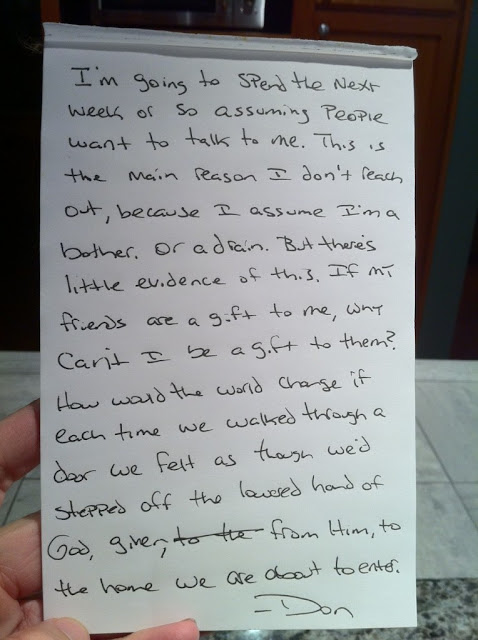 I'm going to spend the next
week or so assuming people
want to talk to me. This is
the main reason I don't reach
out, because I assume I'm a
bother. Or a drain. But there's
little evidence of this. If my
friends are a gift to me, why
can't I be a gift to them?
How would the world change if
each time we walked through a
door we felt as though we'd
stepped off the lowered hand of
God, given, to the from Him, to
the home we are about to enter.
- Don